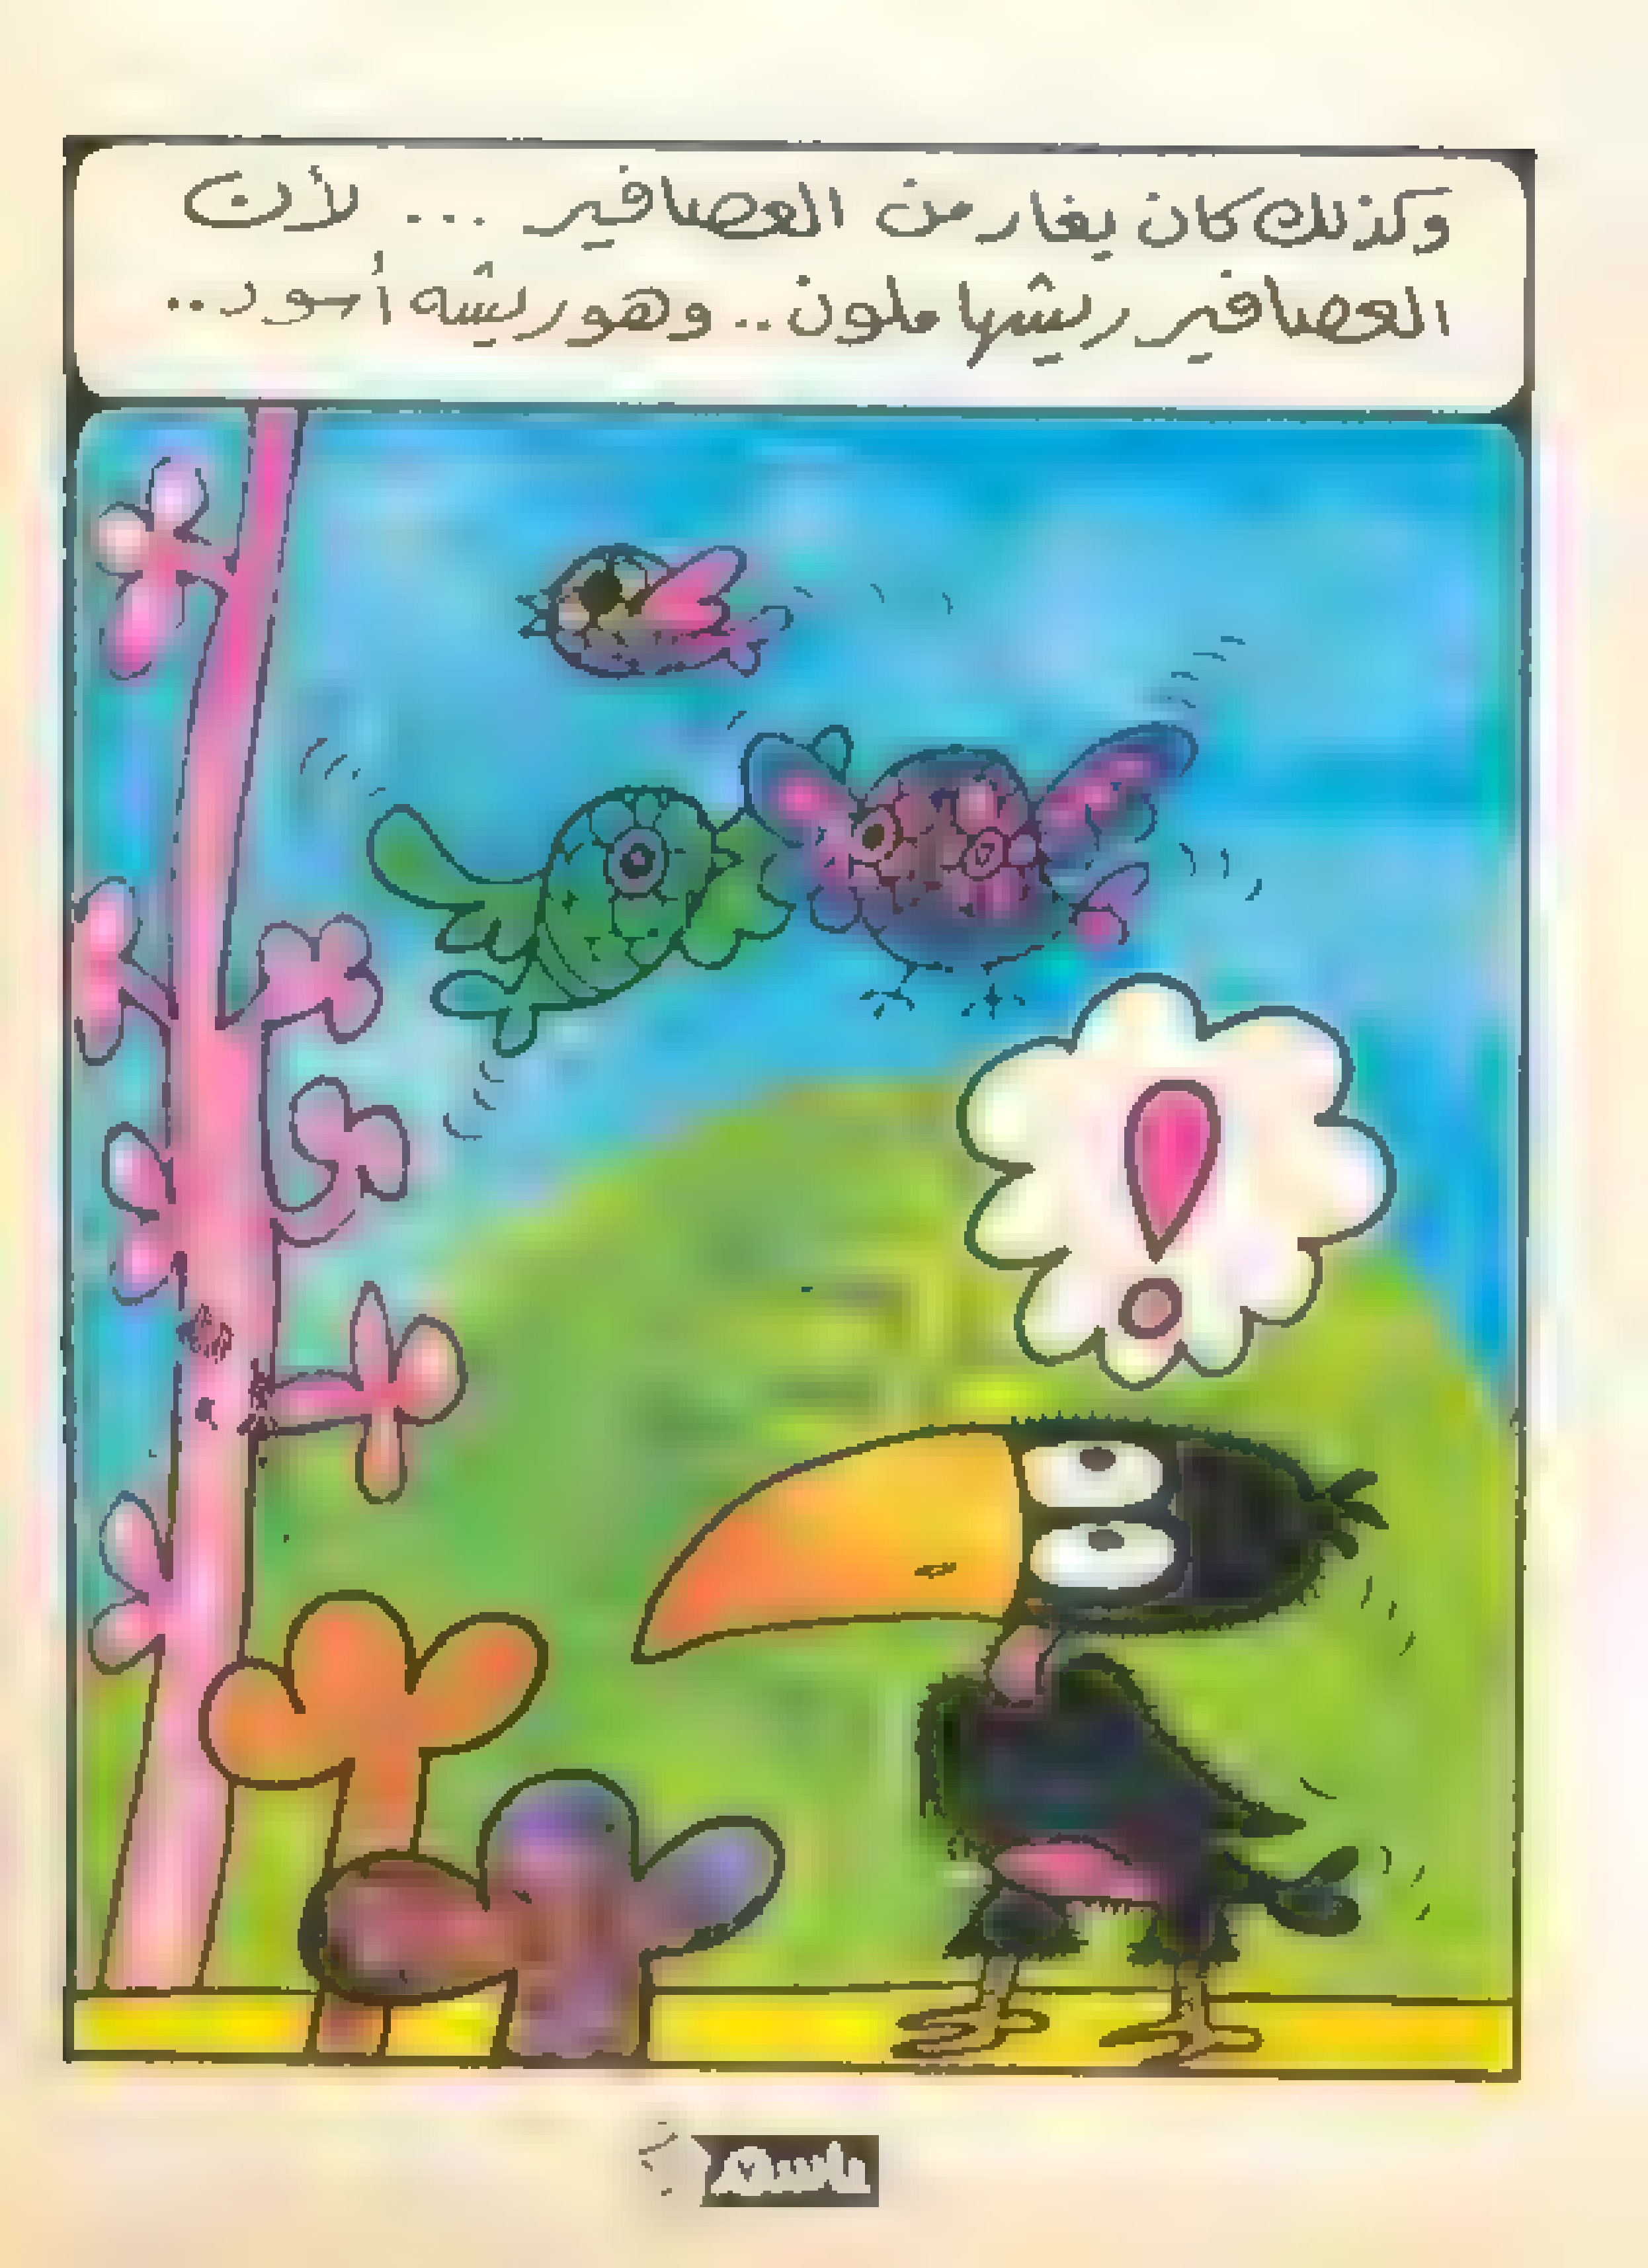 وكذلك كان يغار من العصافير ... لأن
العصافير ريشها ملون .. وهو ريشه أسود ..
باسم